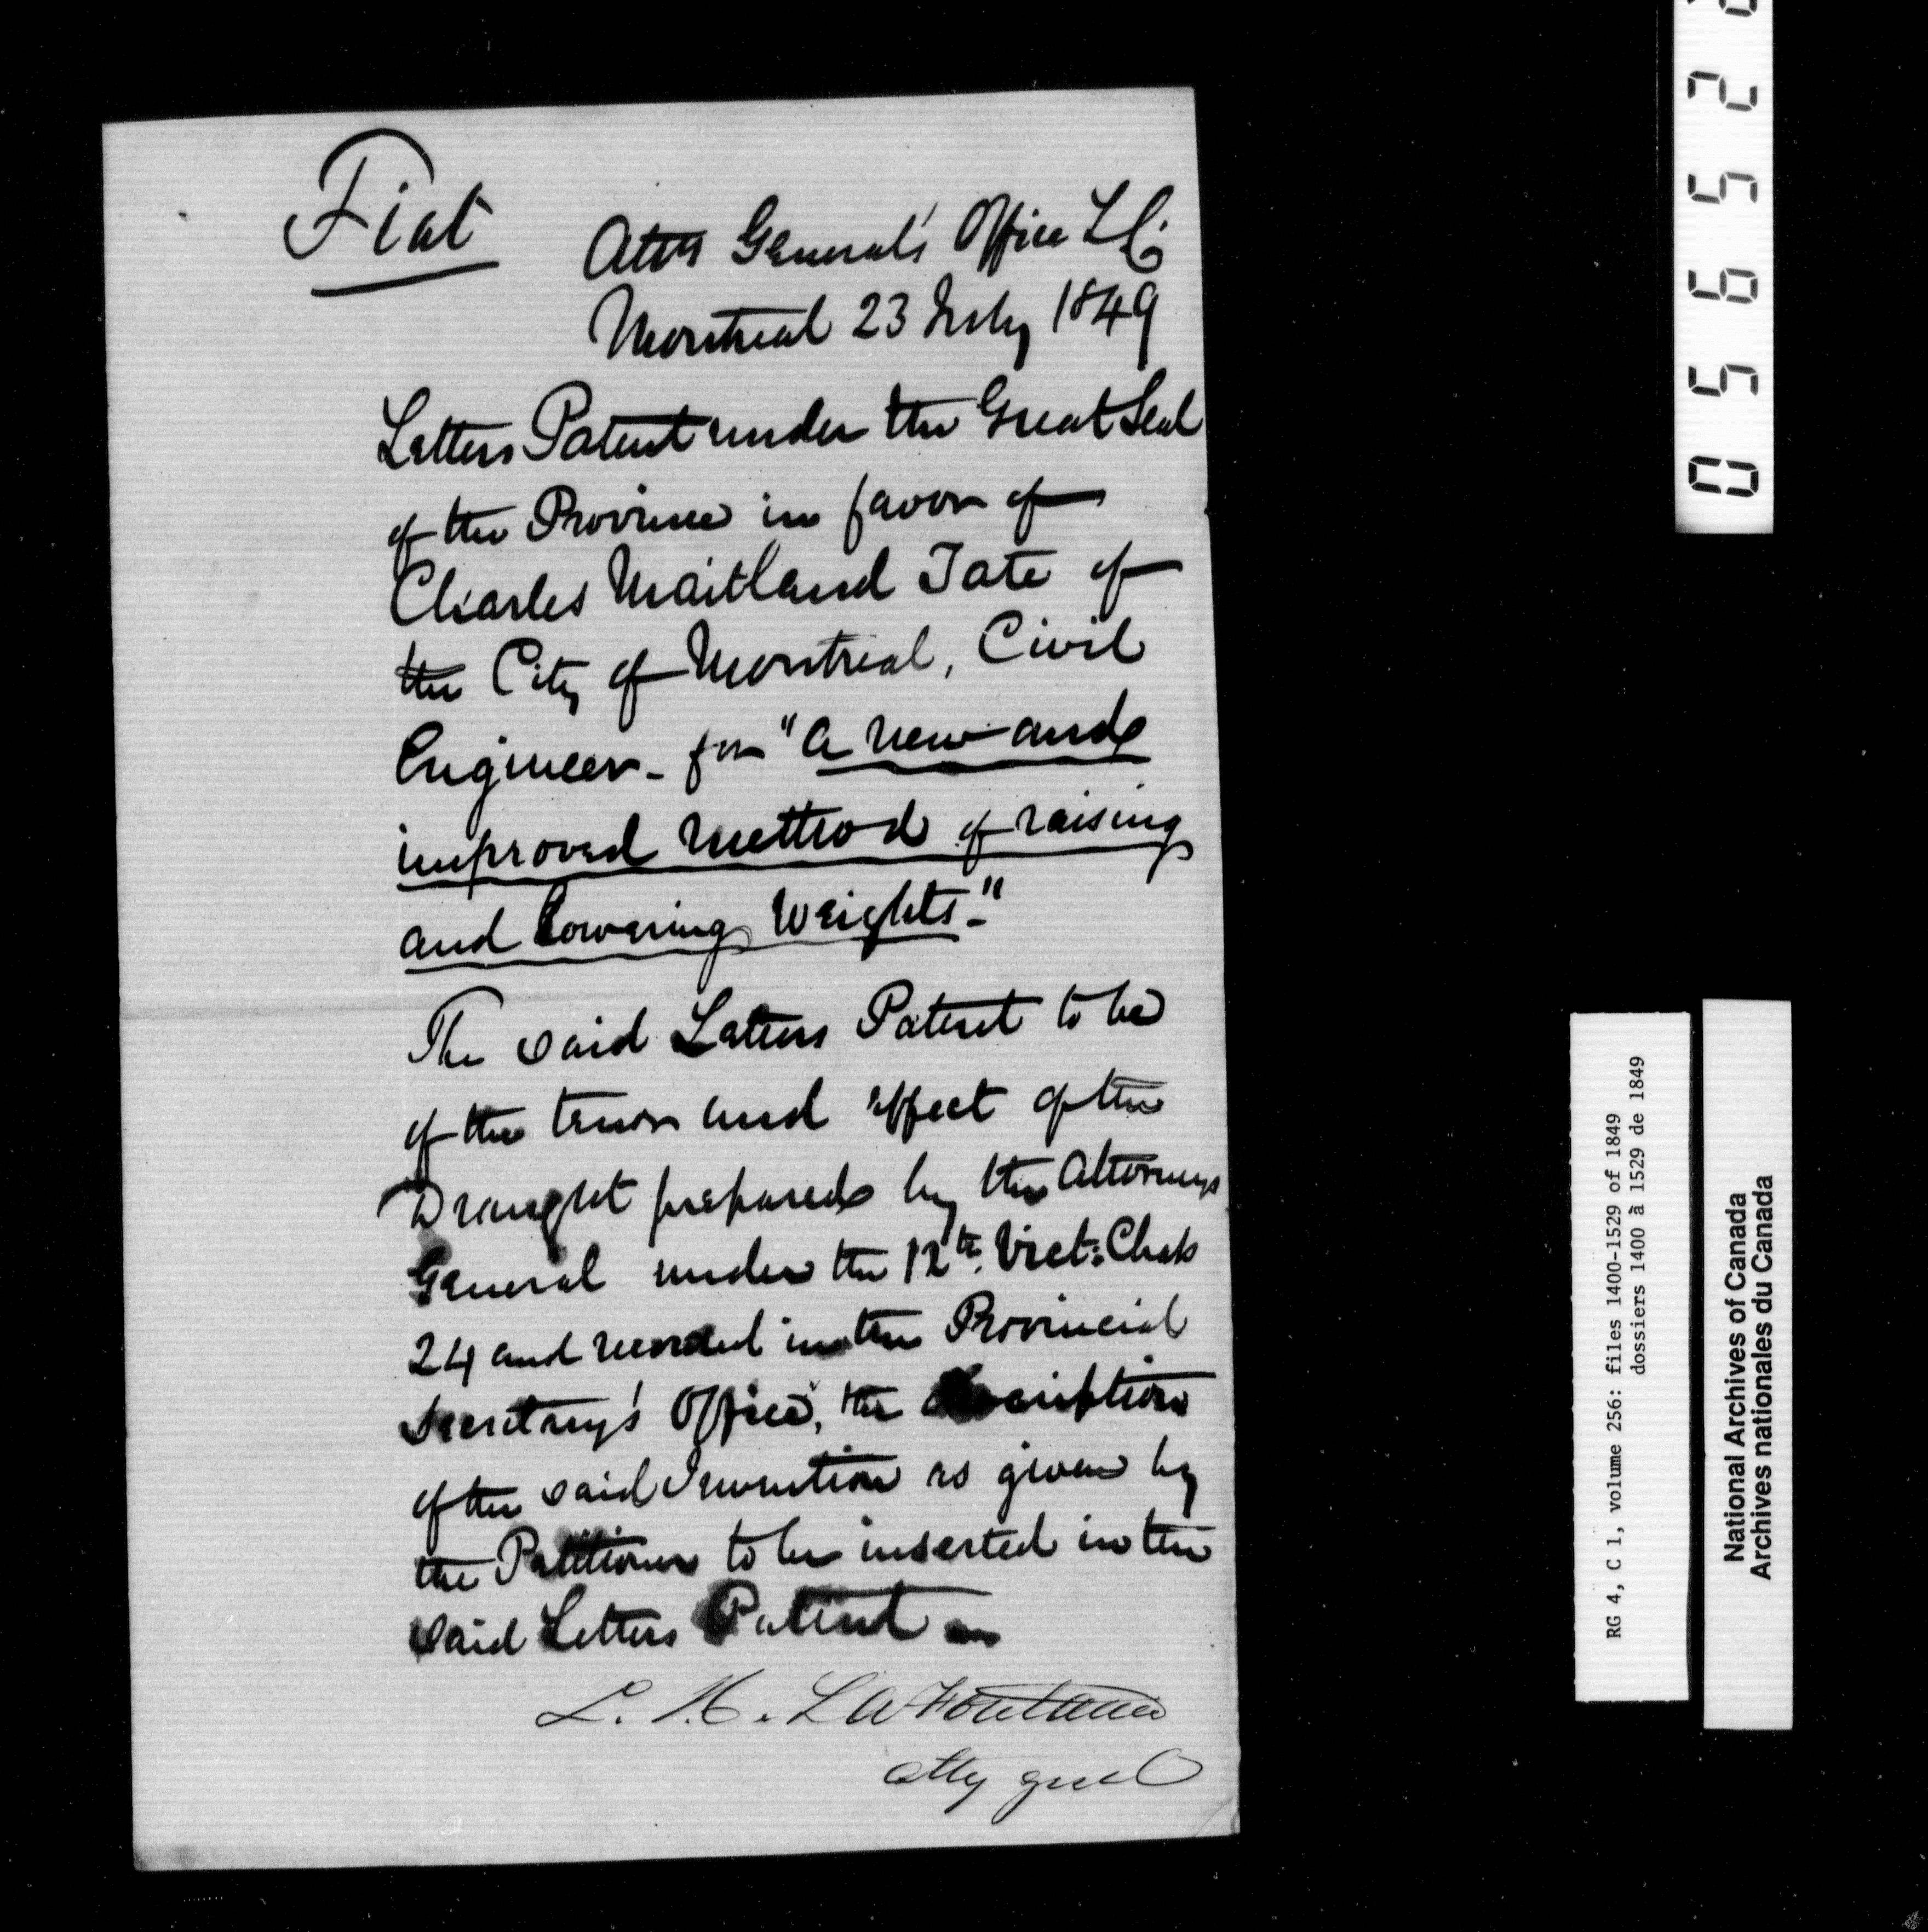 Fiat
Atty General's Office L C.
Montreal 23 July 1849
Letters Patent under the Great Seal
of the Province in favor of
Charles Maitland Tate of
the City of Montreal, Civil
Engineer - for "a new and
improved method of raising
and lowering Weights -"
The said Letters Patent to be
of the tenor and effect of the
Draught prepared by the Attorneys
General under the 12th. Vict: Chap
24 and recorded in the Provincial
Secretary's Office, the description
of the said Invention as given by
the Petitioner to be inserted in the
said Letters Patent
L. H. LaFontaine
atty genl
0 5 6 5 2
RG 4, C 1, volume 256: files 1400-1529 of 1849
dossiers 1400 à 1529 de 1849
National Archives of Canada
Archives nationales du Canada